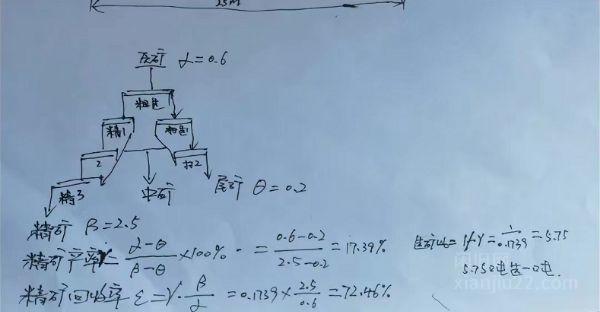 35M
原矿 α=0.6
粗选
精1
扫1
2
扫2
精3
中矿
尾矿 θ=0.2
精矿 β=2.5
精矿产率 = α-θ/β-θ ×100% = 0.6-0.2/2.5-0.2 = 17.39%
选矿比= 1/γ = 1/0.1739 = 5.75
5.75吨选一吨.
精矿回收率 ε=γ·β/α =0.1739×2.5/0.6=72.46%
xianjiu22.com